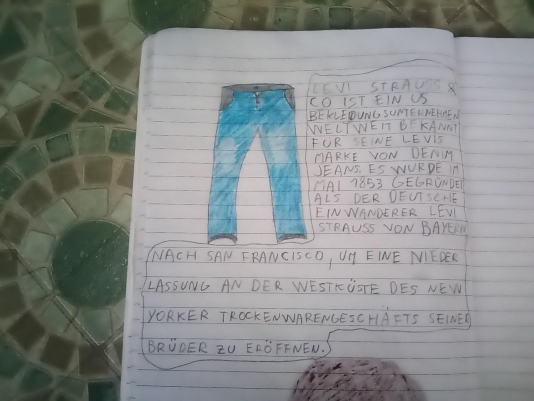 LEVI STRAUSS &
CO IST EIN US
BEKLEDUNGSUNTERNEHMEN
WELTWEIT BEKANNT
FÜR SEINE LEVIS
MARKE VON DENIM
JEANS. ES WURDE IM
MAI 1853 GEGRÜNDET
ALS DER DEUTSCHE
EINWANDERER LEVI
STRAUSS VON BAYERN
NACH SAN FRANCISCO, UM EINE NIEDER
LASSUNG AN DER WESTKÜSTE DES NEW
YORKER TROCKENWARENGESCHÄFTS SEINER
BRÜDER ZU ERÖFFNEN.